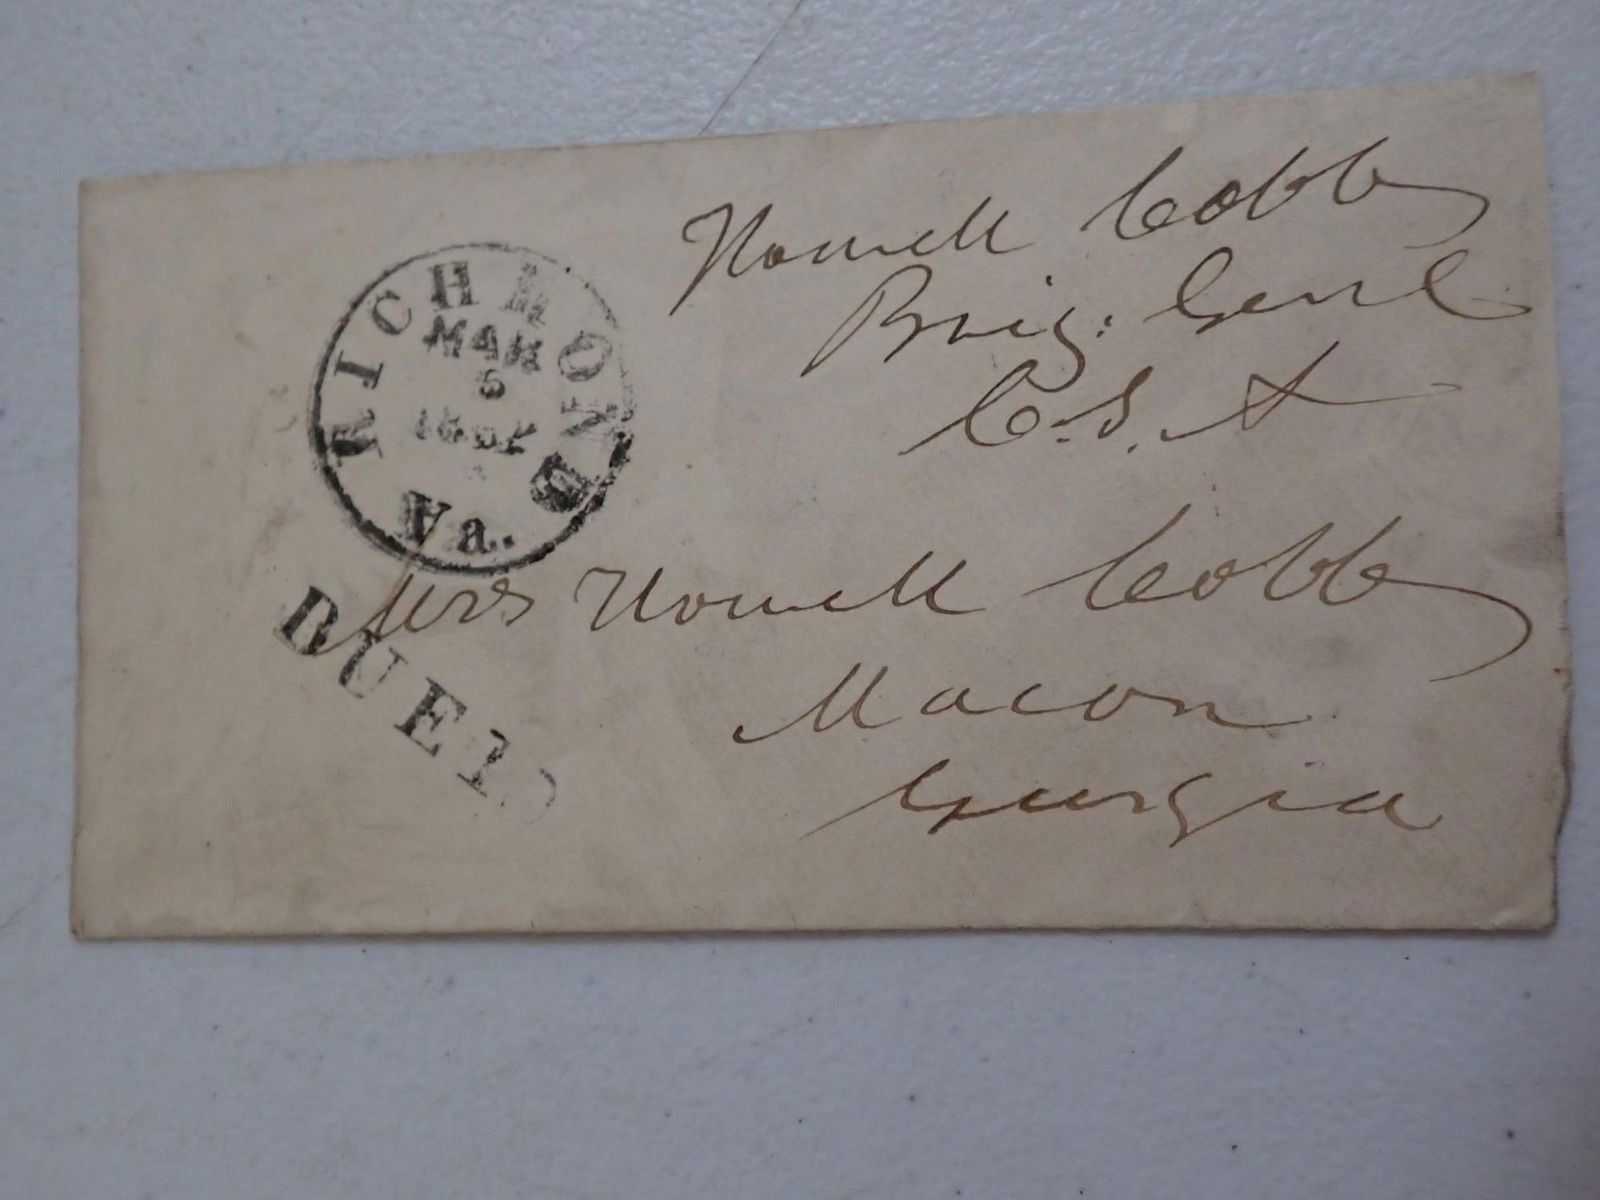 Howell Cobb
Brig: Genl
C.S.A
RICHMOND
MAR
1862
Va.
Mrs Howell Cobb
DUE 10
Macon
Georgia